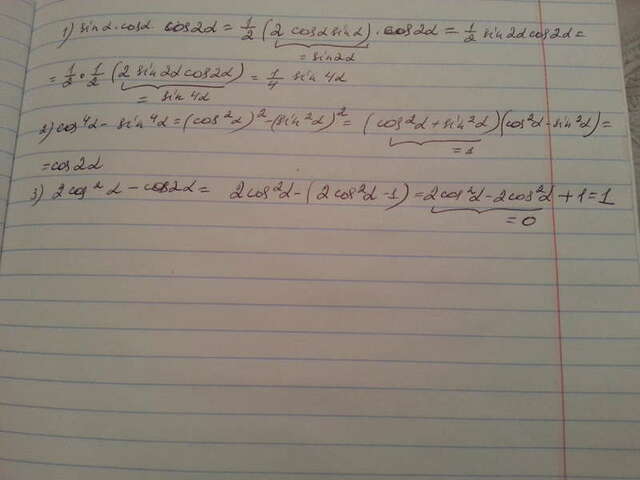 1) sinα·cosα·cos2α = 1/2 (2 cosα sinα)·cos2α = 1/2 sin2αcos2α =
= sin2α
= 1/2 · 1/2 (2 sin2αcos2α) = 1/4 sin 4α
= sin 4α
2) cos⁴α - sin⁴α = (cos²α)² - (sin²α)² = (cos²α + sin²α)(cos²α - sin²α) =
= 1
= cos2α
3) 2cos²α - cos2α = 2cos²α - (2cos²α - 1) = 2cos²α - 2cos²α + 1 = 1
= 0